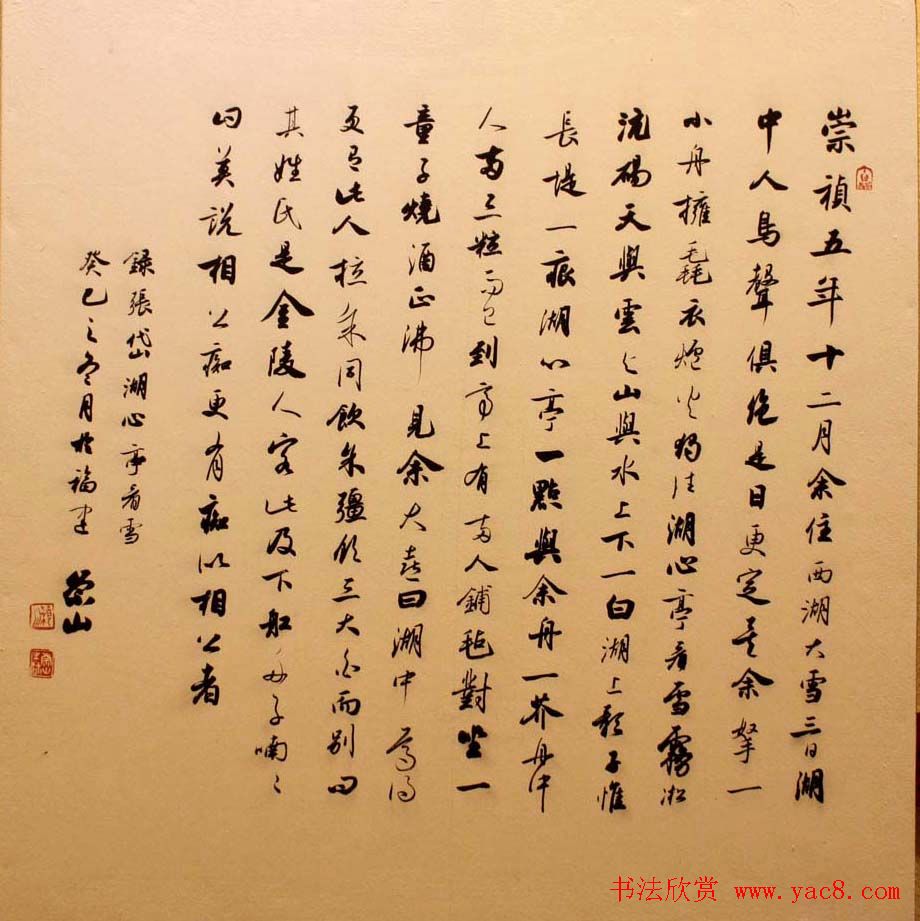 崇禎五年十二月余住西湖大雪三日湖
中人鳥聲俱絶是日更定矣余拏一
小舟擁毳衣爐火獨往湖心亭看雪霧凇
沆碭天與雲与山與水上下一白湖上影子惟
長堤一痕湖心亭一點與余舟一芥舟中
人兩三粒而已到亭上有兩人鋪毡對坐一
童子燒酒正沸見余大喜曰湖中焉得
更有此人拉余同飲余彊飲三大白而別問
其姓氏是金陵人客此及下船舟子喃々
曰莫説相公痴更有痴似相公者
錄張岱湖心亭看雪
癸巳之冬月於福建
榮山
书法欣赏 www.yac8.com